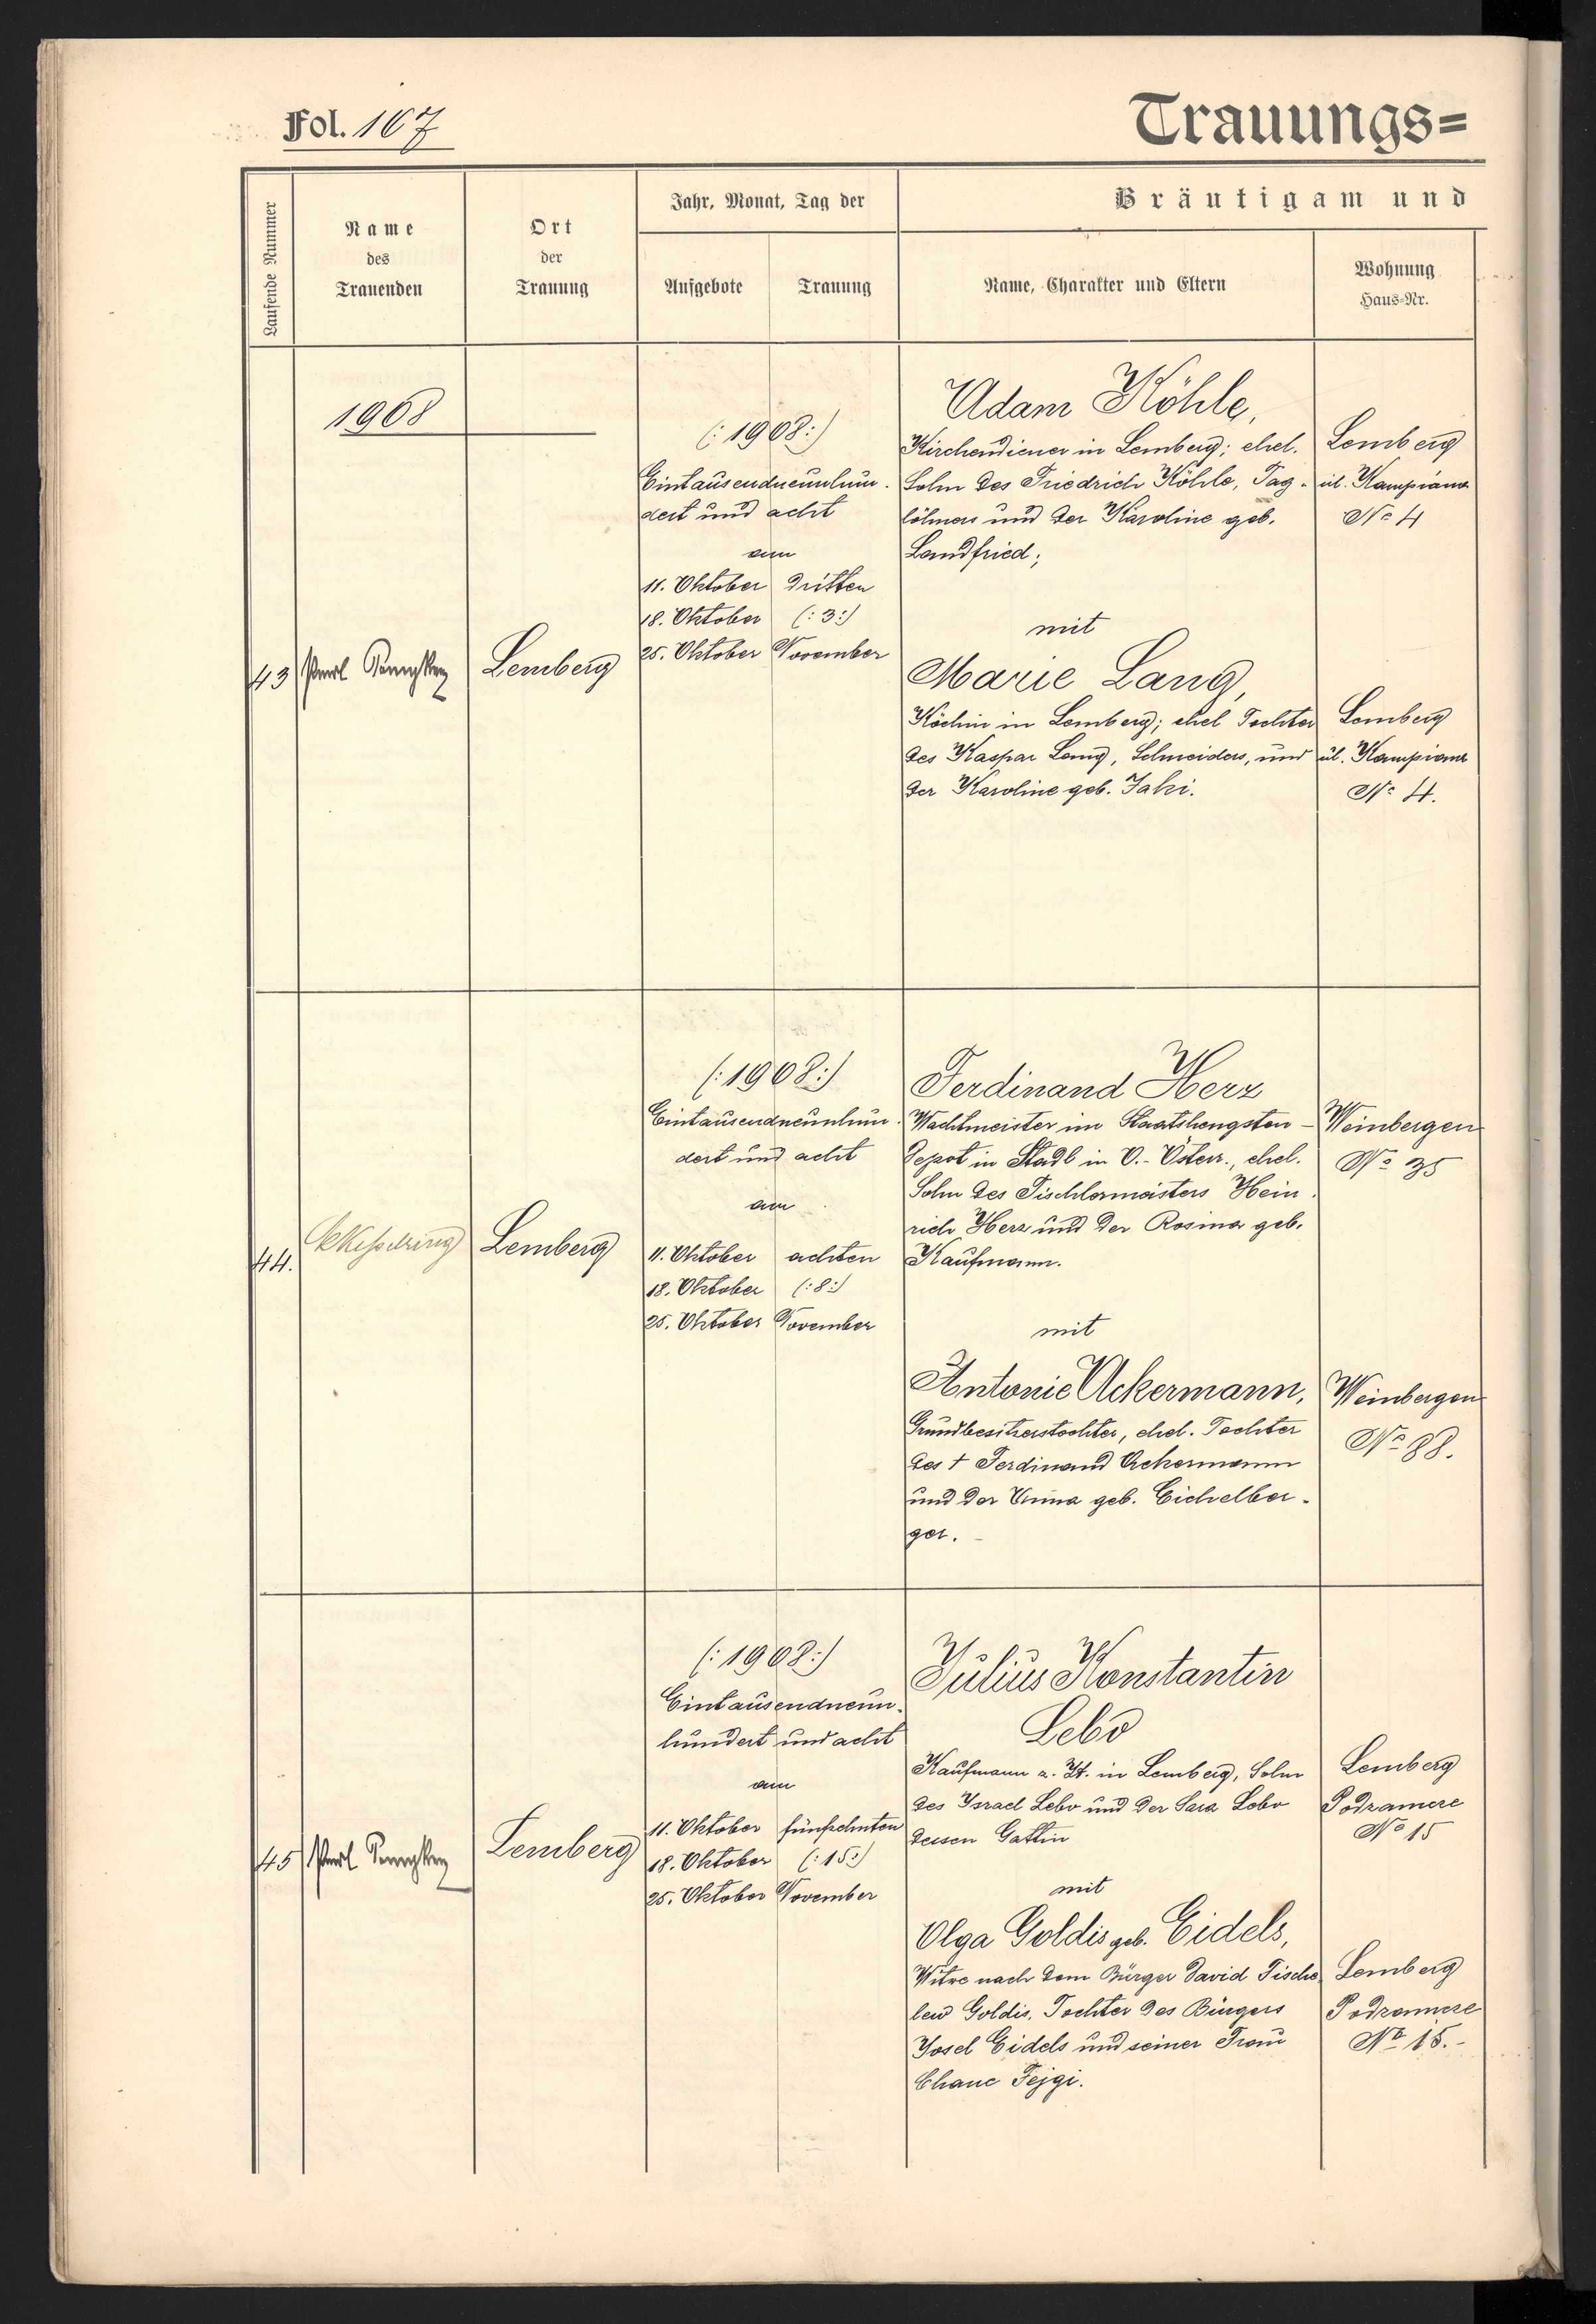 Fol. 167
Trauungs=
Laufende Nummer
Name
des
Trauenden
Ort
der
Trauung
Jahr, Monat, Tag der
Aufgebote
Trauung
Bräutigam und
Name, Charakter und Eltern
Wohnung
Haus-Nr.
1908
43
Lemberg
(: 1908 :)
Eintausendneunhun-
dert und acht
am
11. Oktober
18. Oktober
25. Oktober
Dritten
(: 3 :)
November
Adam Köhle,
Kirchendiener in Lemberg; ehel.
Sohn des Friedrich Köhle, Tag-
löhners und der Karoline geb.
Landfried;
mit
Marie Lang,
Köchin in Lemberg; ehel Tochter
des Kaspar Lang, Schneiders, und
der Karoline geb. Jaki.
Lemberg
ul. Kampiana
No 4
Lemberg
ul. Kampiana
No 4.
44.
Lemberg
(: 1908 :)
Eintausendneunhun-
dert und acht
am
11. Oktober
18. Oktober
25. Oktober
achten
(: 8 :)
November
Ferdinand Herz
Wachtmeister im Staatshengsten-
Depot in Stadl in O.-Österr., ehel.
Sohn des Tischlermeisters Hein-
rich Herz und der Rosina geb.
Kaufmann.
mit
Antonie Ackermann,
Grundbesitzerstochter, ehel. Tochter
des † Ferdinand Ackermann
und der Anna geb. Eichelber-
ger. -
Weinbergen
No 35
Weinbergen
No 88.
45
Lemberg
(: 1908 :)
Eintausendneun-
hundert und acht
am
11. Oktober
18. Oktober
25. Oktober
fünfzehnten
(: 15 :)
November
Julius Konstantin
Lebo
Kaufmann z. Zt. in Lemberg, Sohn
des Israel Lebo und der Sara Lebo
dessen Gattin
mit
Olga Goldis geb. Eidels,
Witwe nach dem Bürger David Fische-
lew Goldis, Tochter des Bürgers
Josel Eidels und seiner Frau
Chane Fejgi.
Lemberg
Podzamcze
No 15
Lemberg
Podzamcze
No 15.-